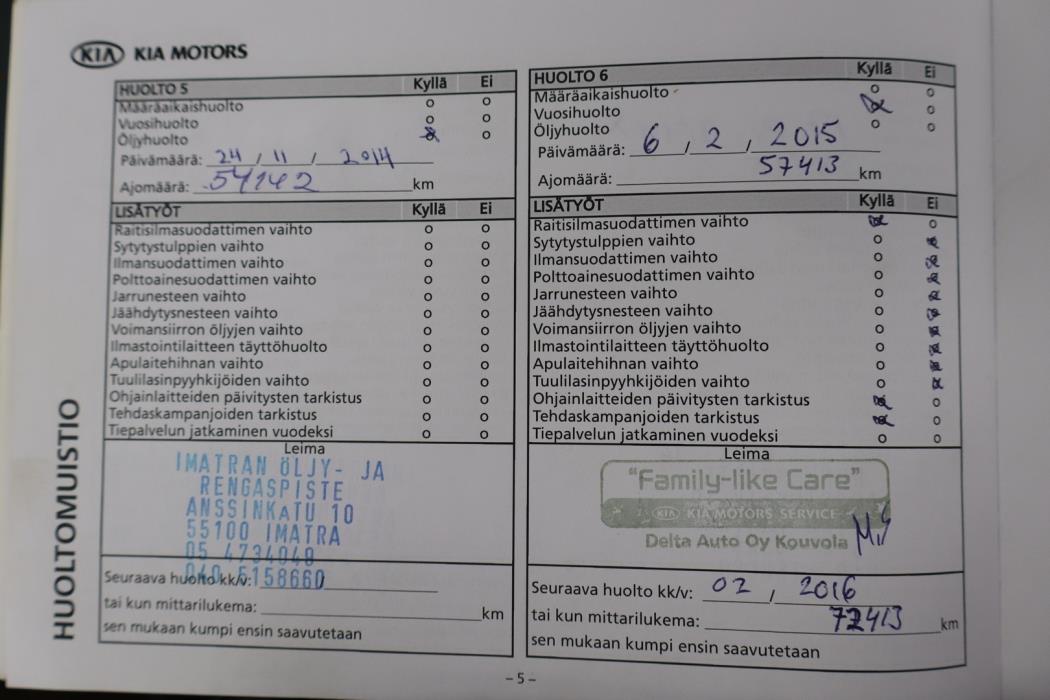 KIA KIA MOTORS
HUOLTO 5 Kyllä Ei
Määräaikaishuolto
Vuosihuolto
Öljyhuolto
Päivämäärä: 24 / 11 / 2014
Ajomäärä: 54142 km
LISÄTYÖT Kyllä Ei
Raitisilmasuodattimen vaihto
Sytytystulppien vaihto
Ilmansuodattimen vaihto
Polttoainesuodattimen vaihto
Jarrunesteen vaihto
Jäähdytysnesteen vaihto
Voimansiirron öljyjen vaihto
Ilmastointilaitteen täyttöhuolto
Apulaitehihnan vaihto
Tuulilasinpyyhkijöiden vaihto
Ohjainlaitteiden päivitysten tarkistus
Tehdaskampanjoiden tarkistus
Tiepalvelun jatkaminen vuodeksi
Leima
IMATRAN ÖLJY- JA
RENGASPISTE
ANSSINKATU 10
55100 IMATRA
05 4734040
040 5158660
Seuraava huolto kk/v:
tai kun mittarilukema: km
sen mukaan kumpi ensin saavutetaan
HUOLTO 6 Kyllä Ei
Määräaikaishuolto
Vuosihuolto
Öljyhuolto
Päivämäärä: 6 / 2 / 2015
Ajomäärä: 57413 km
LISÄTYÖT Kyllä Ei
Raitisilmasuodattimen vaihto
Sytytystulppien vaihto
Ilmansuodattimen vaihto
Polttoainesuodattimen vaihto
Jarrunesteen vaihto
Jäähdytysnesteen vaihto
Voimansiirron öljyjen vaihto
Ilmastointilaitteen täyttöhuolto
Apulaitehihnan vaihto
Tuulilasinpyyhkijöiden vaihto
Ohjainlaitteiden päivitysten tarkistus
Tehdaskampanjoiden tarkistus
Tiepalvelun jatkaminen vuodeksi
Leima
"Family-like Care"
KIA KIA MOTORS SERVICE
Delta Auto Oy Kouvola
Seuraava huolto kk/v: 02 / 2016
tai kun mittarilukema: 72413 km
sen mukaan kumpi ensin saavutetaan
HUOLTOMUISTIO
- 5 -